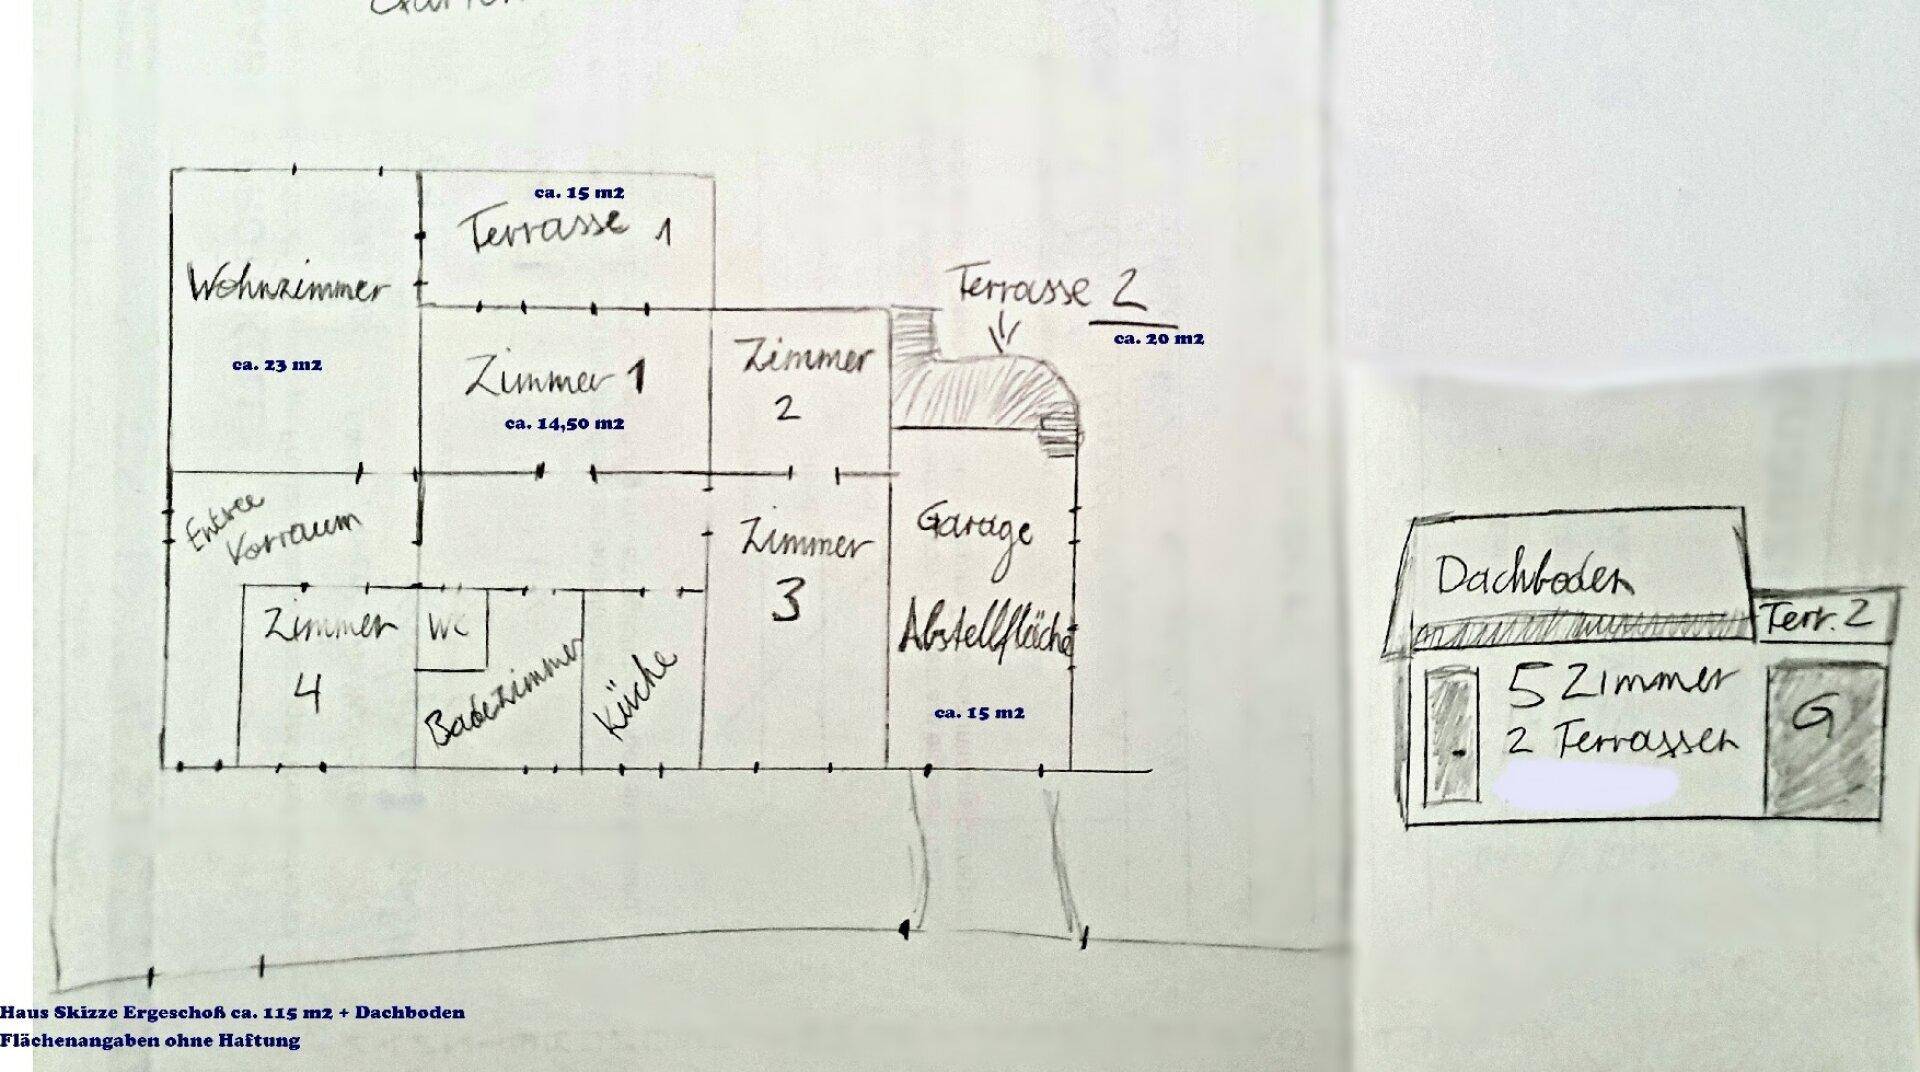 ca. 15 m2
Terrasse 1
Wohnzimmer
ca. 23 m2
Zimmer 1
ca. 14,50 m2
Zimmer
2
Terrasse 2
ca. 20 m2
Entree
Vorraum
Zimmer
3
Garage
Abstellfläche
ca. 15 m2
Zimmer
4
WC
Badezimmer
Küche
Dachboden
Terr. 2
5 Zimmer
2 Terrassen
G
Haus Skizze Ergeschoß ca. 115 m2 + Dachboden
Flächenangaben ohne Haftung